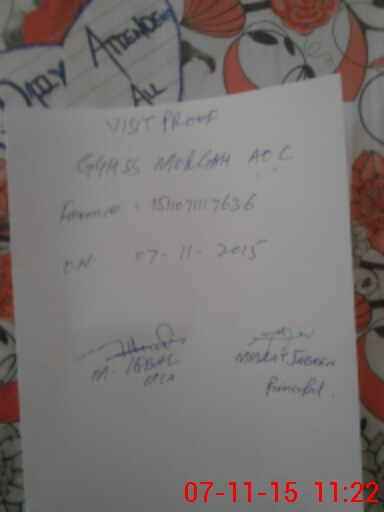 DAILY ATTENDENT
ALL
VISIT PROOF
GGHSS MORGAH AOC
Form no - 1511071117636
ON 07-11-2015
M. IQBAL
MEA
MUSRAT JABEEN
Principal.
07-11-15 11:22